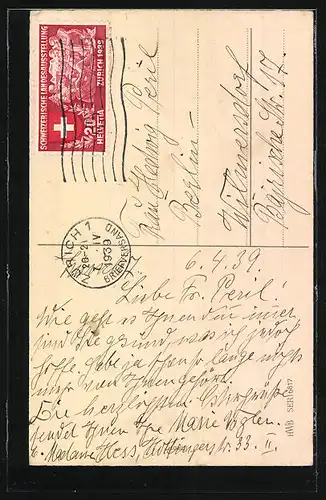 SCHWEIZERISCHE LANDESAUSSTELLUNG
ZÜRICH 1939
20
HELVETIA
Frau Hedwig Peril
Berlin-
Wilmersdorf
Bayrische Str. 17.
ZÜRICH 1
1939
BRIEFVERSAND
6.4.39.
Liebe Fr. Peril!
Wie geht es Ihnen denn immer
sind Sie gesund was ich jedoch
hoffe. Habe ja schon so lange nichts
mehr von Ihnen gehört.
Die herzlichsten Ostergrüße
sendet Ihnen Ihre Marie Vogler
b. Madame Hess, Hottingerstr. 33. II.
SER 10617